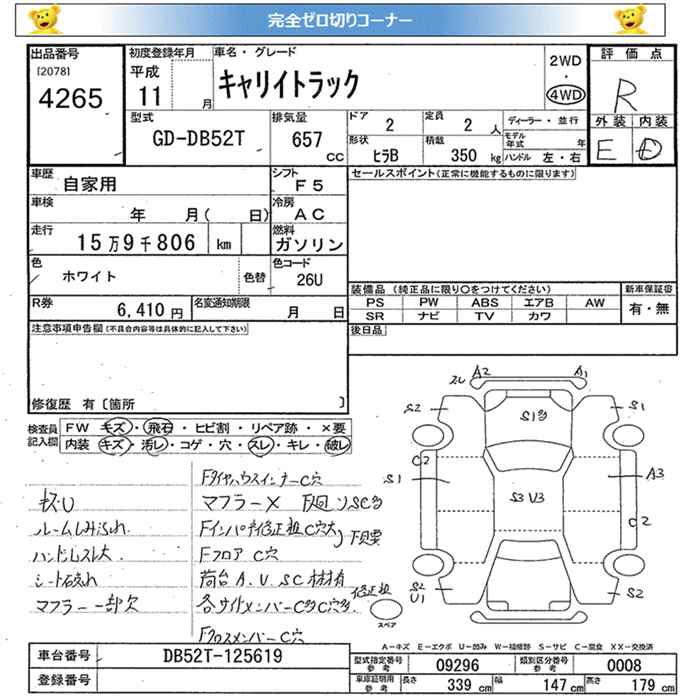 完全ゼロ切りコーナー
出品番号 初度登録年月 車名・グレード 2WD 評価点
[2078] 平成 キャリイトラック ・ R
4265 11 月 4WD
外装 内装
E D
型式 排気量 ドア 2 定員 2 人 ディーラー・並行
GD-DB52T 657 cc 形状 ヒラB 積載 350 kg モデル年式 年
ハンドル 左・右
車歴 自家用 シフト F5 セールスポイント(正常に機能するものに限ります)
車検 年 月( 日) 冷房 AC
走行 15万9千806 km 燃料 ガソリン
色 ホワイト 色替 色コード 26U
装備品(純正品に限り○をつけてください) 新車保証書
R券 6,410円 名変通知期限 月 日 PS PW ABS エアB AW 有・無
SR ナビ TV カワ
注意事項申告欄(不具合内容等は具体的に記入して下さい) 後日品
修復歴 有〔箇所 〕
検査員記入欄 FW キズ・飛石・ヒビ割・リペア跡・×要
内装 キズ・汚レ・コゲ・穴・スレ・キレ・破レ
A2 A1
S2 S1多 S1
C2
S1 S3 U3 A3
C2
S2
U1 S2
スペア
Fタイヤハウスインナー C穴
マフラー× 下廻りSC多
ルームしみ汚れ
Fフロア C穴
シート破れ
マフラー一部欠
Fクロスメンバー C穴
A-キズ E-エクボ U-凹み W-補修跡 S-サビ C-腐食 XX-交換済
車台番号 DB52T-125619 型式指定番号 参考 09296 類別区分番号 参考 0008
登録番号 車庫証明用 参考 長さ 339 cm 幅 147 cm 高さ 179 cm